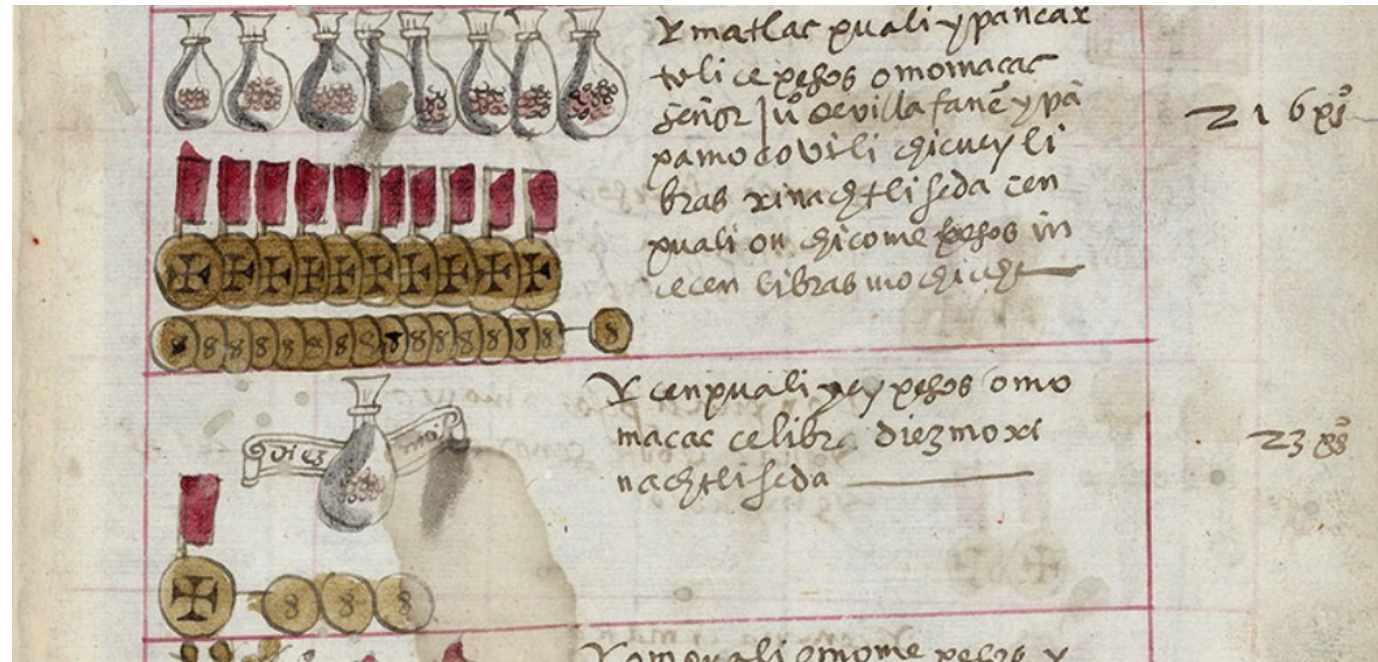 Y matlac puali ypancax
toli ce pesos omomacac
señor juº de villa fañe ypā
pamocovili chicuey li
bras xinachtli seda cen
puali on chicome pesos in
cecen libras mochiuh
216 pºs
8 8 8 8 8 8 8 8 8 8 8 8 8 8 8 8
Y cenpuali yey pesos omo
macac ce libra diezmo xi
nachtli seda
23 pºs
diez mo
8 8 8
Y ompuali omome pesos y